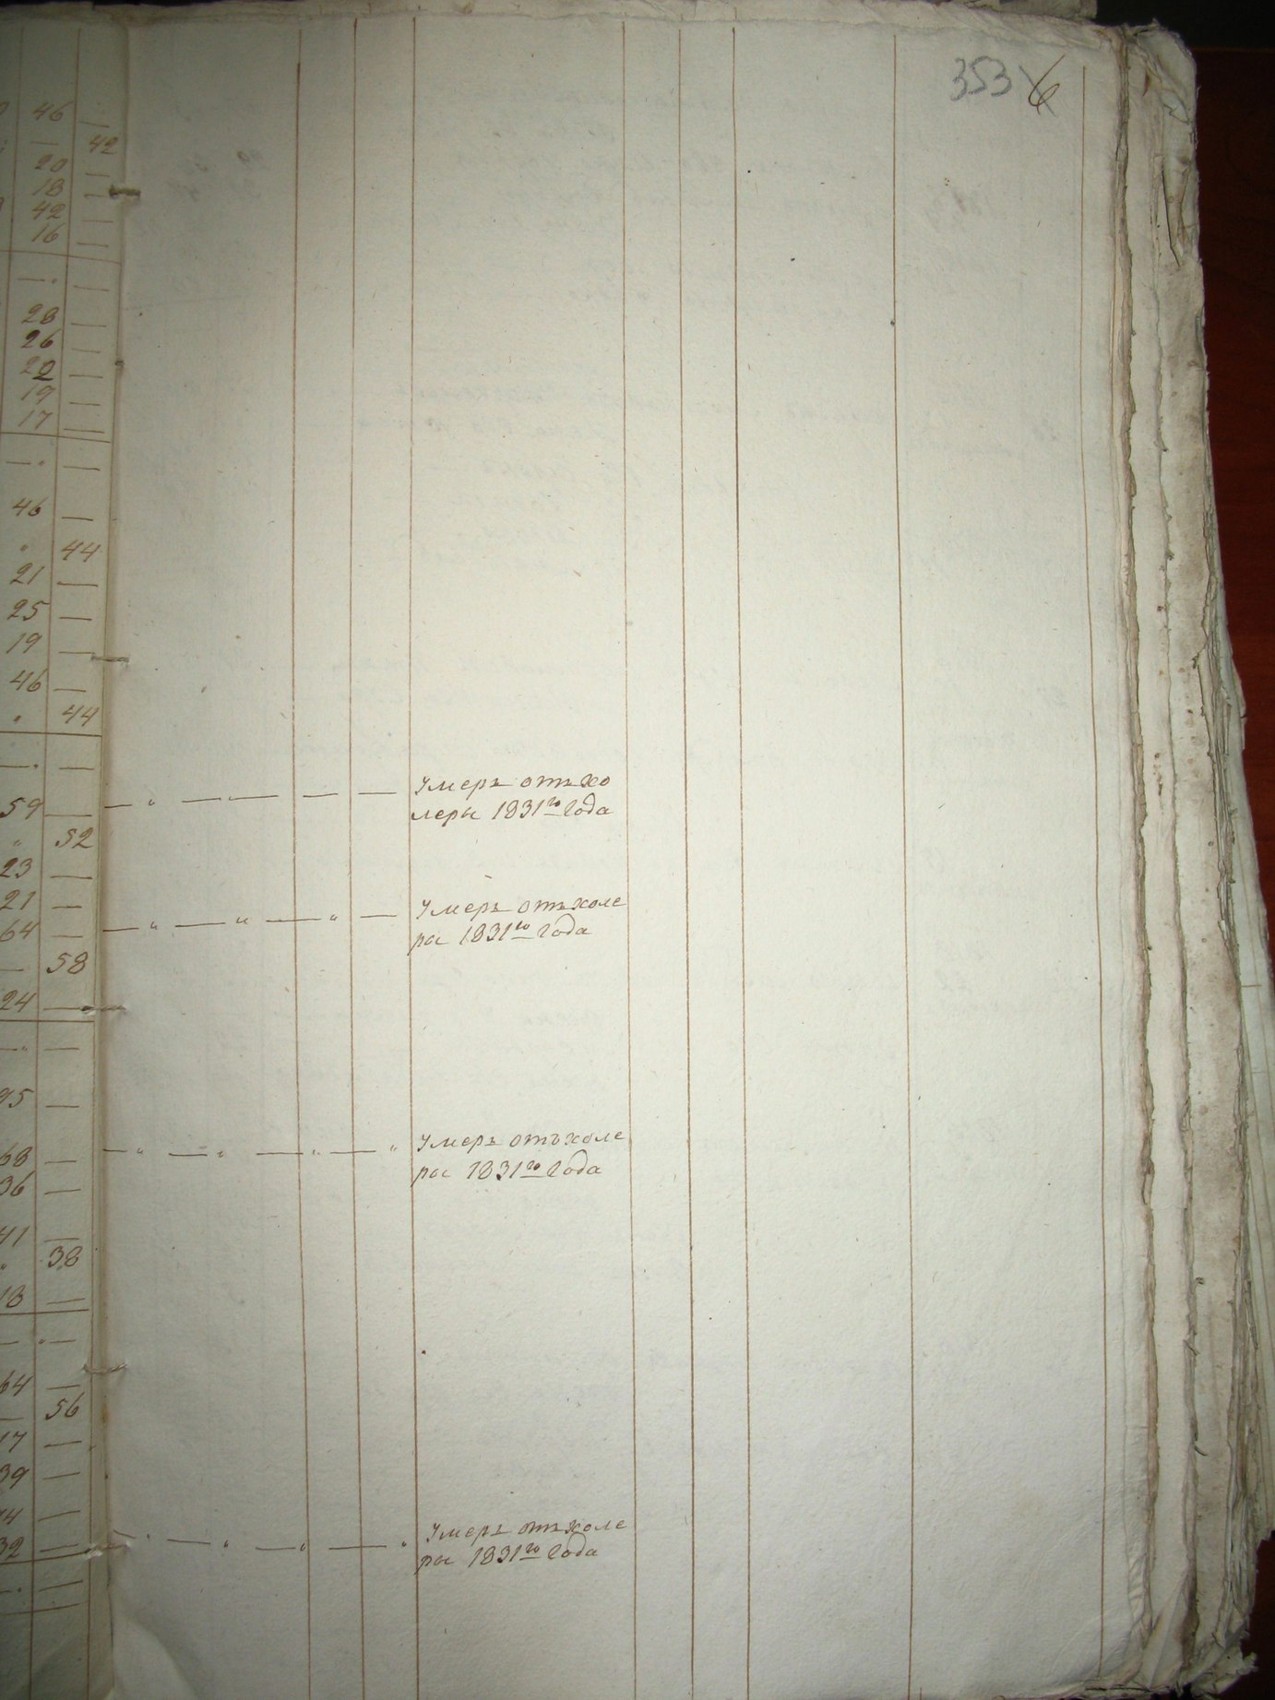 353 6
46 —
— 42
20 —
18 —
42 —
16 —
— —
28 —
26 —
22 —
19 —
17 —
— —
46 —
" 44
21 —
25 —
19 —
46 —
" 44
— —
59 —
" 52
23 —
21 —
64 —
— 58
24 —
— —
95 —
68 —
36 —
41 —
" 38
18 —
— —
64 —
— 56
17 —
39 —
14 —
32 —
— —
Умеръ отъ хо
леры 1831го года
Умеръ отъ холе
ры 1831го года
Умеръ отъ холе
ры 1831го года
Умеръ отъ холе
ры 1831го года